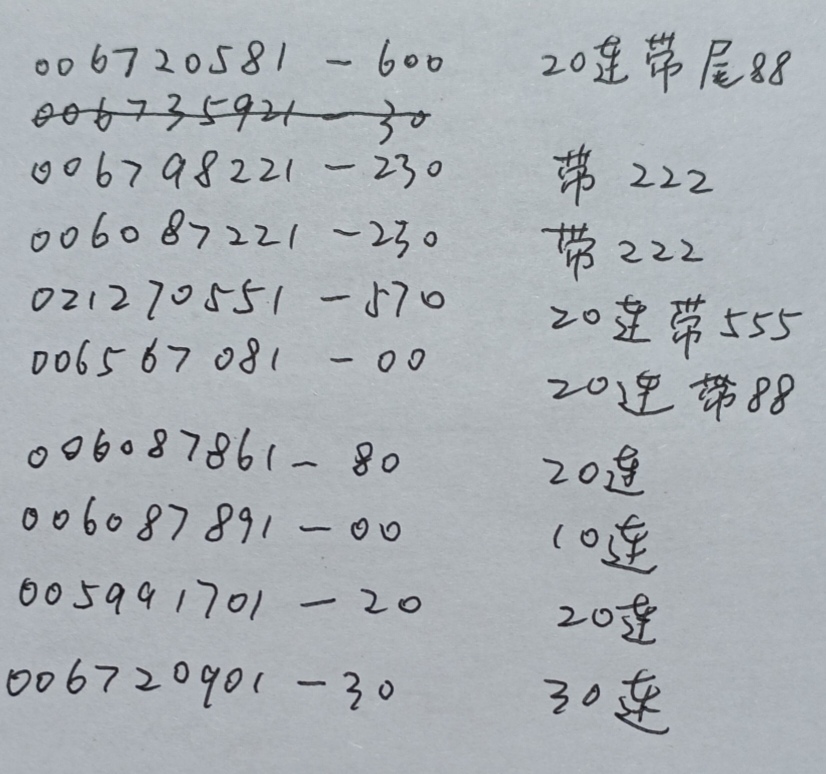 006720581 - 600 20连带尾88
006735921 - 30
006798221 - 230 带 222
006087221 - 230 带 222
021270551 - 570 20连带555
006567081 - 00 20连带88
006087861 - 80 20连
006087891 - 00 10连
005991701 - 20 20连
006720901 - 30 30连